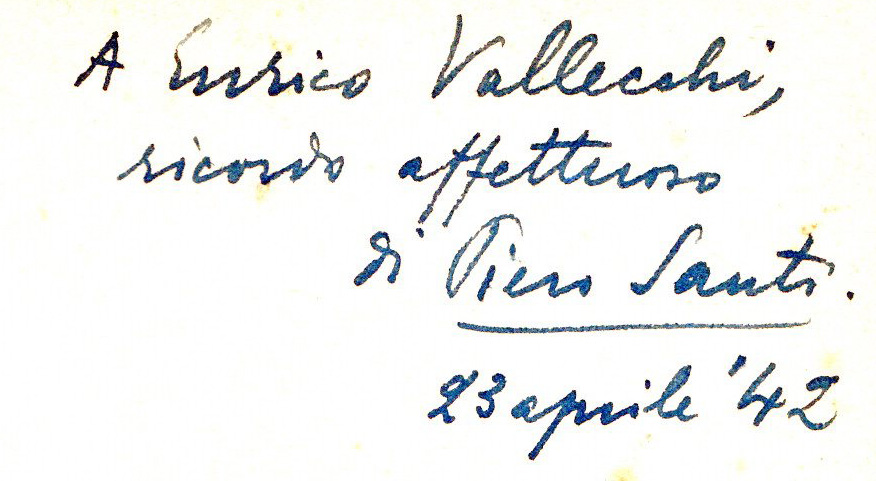 A Enrico Vallecchi,
ricordo affettuoso
di Piero Santi.
23 aprile '42